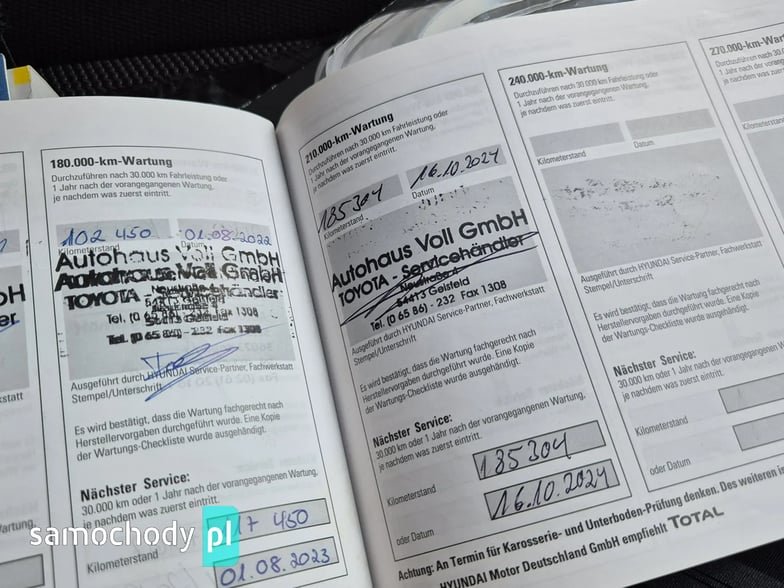 180.000-km-Wartung
Durchzuführen nach 30.000 km Fahrleistung oder
1 Jahr nach der vorangegangenen Wartung,
je nachdem was zuerst eintritt.
102 450 01.08.2022
Kilometerstand Datum
Autohaus Voll GmbH
Autohaus Voll GmbH
TOYOTA - Servicehändler
Tel. (0 65 86) - 232 Fax 1308
Ausgeführt durch HYUNDAI Service-Partner, Fachwerkstatt
Stempel/Unterschrift
Es wird bestätigt, dass die Wartung fachgerecht nach
Herstellervorgaben durchgeführt wurde. Eine Kopie
der Wartungs-Checkliste wurde ausgehändigt.
Nächster Service:
30.000 km oder 1 Jahr nach der vorangegangenen Wartung,
je nachdem was zuerst eintritt.
17 450
Kilometerstand
01.08.2023
samochody pl
210.000-km-Wartung
Durchzuführen nach 30.000 km Fahrleistung oder
1 Jahr nach der vorangegangenen Wartung,
je nachdem was zuerst eintritt.
185304 16.10.2024
Kilometerstand Datum
Autohaus Voll GmbH
TOYOTA - Servicehändler
Neustraße 4
54413 Geisfeld
Tel. (0 65 86) - 232 Fax 1308
Ausgeführt durch HYUNDAI Service-Partner, Fachwerkstatt
Stempel/Unterschrift
Es wird bestätigt, dass die Wartung fachgerecht nach
Herstellervorgaben durchgeführt wurde. Eine Kopie
der Wartungs-Checkliste wurde ausgehändigt.
Nächster Service:
30.000 km oder 1 Jahr nach der vorangegangenen Wartung,
je nachdem was zuerst eintritt.
185304
Kilometerstand
16.10.2024
oder Datum
240.000-km-Wartung
Durchzuführen nach 30.000 km Fahrleistung oder
1 Jahr nach der vorangegangenen Wartung,
je nachdem was zuerst eintritt.
Kilometerstand Datum
Ausgeführt durch HYUNDAI Service-Partner, Fachwerkstatt
Stempel/Unterschrift
Es wird bestätigt, dass die Wartung fachgerecht nach
Herstellervorgaben durchgeführt wurde. Eine Kopie
der Wartungs-Checkliste wurde ausgehändigt.
Nächster Service:
30.000 km oder 1 Jahr nach der vorangegangenen
je nachdem was zuerst eintritt.
Kilometerstand
oder Datum
270.000-km-
Durchzuführen nach 30.000
1 Jahr nach der vorange
je nachdem was zuerst
Kilometerstand
Achtung: An Termin für Karosserie- und Unterboden-Prüfung denken. Des weiteren
HYUNDAI Motor Deutschland GmbH empfiehlt TOTAL